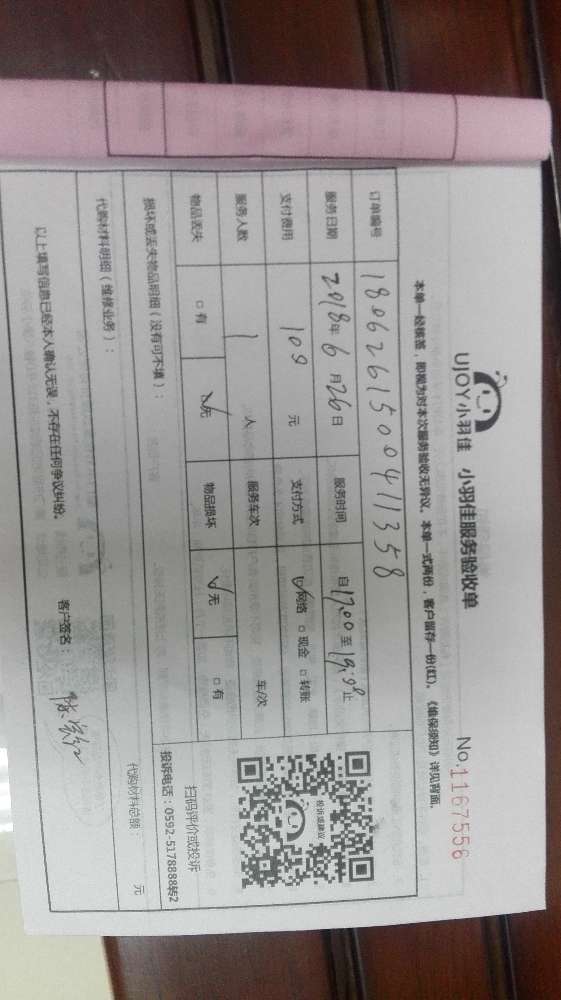 UJOY小羽佳 小羽佳服务验收单
No.1167556
本单一经核签，即视为对本次服务验收无异议。本单一式两份，客户留存一份(红)。《维保须知》详见背面。
订单编号 180626150041358
服务日期 2018年6月26日 服务时间 自17:00至19:08止
支付费用 100元 支付方式 ☑网络 □现金 □转账
服务人数 1人 服务车次 车/次
物品丢失 □有 ☑无 物品损坏 ☑无 □有
投诉或建议
扫码评价或投诉
投诉电话：0592-5178888转2
损坏或丢失物品明细（没有可不填）：
代购材料明细（维修业务）：
代购材料总额： 元
以上填写信息已经本人确认无误，不存在任何争议纠纷。 客户签名：